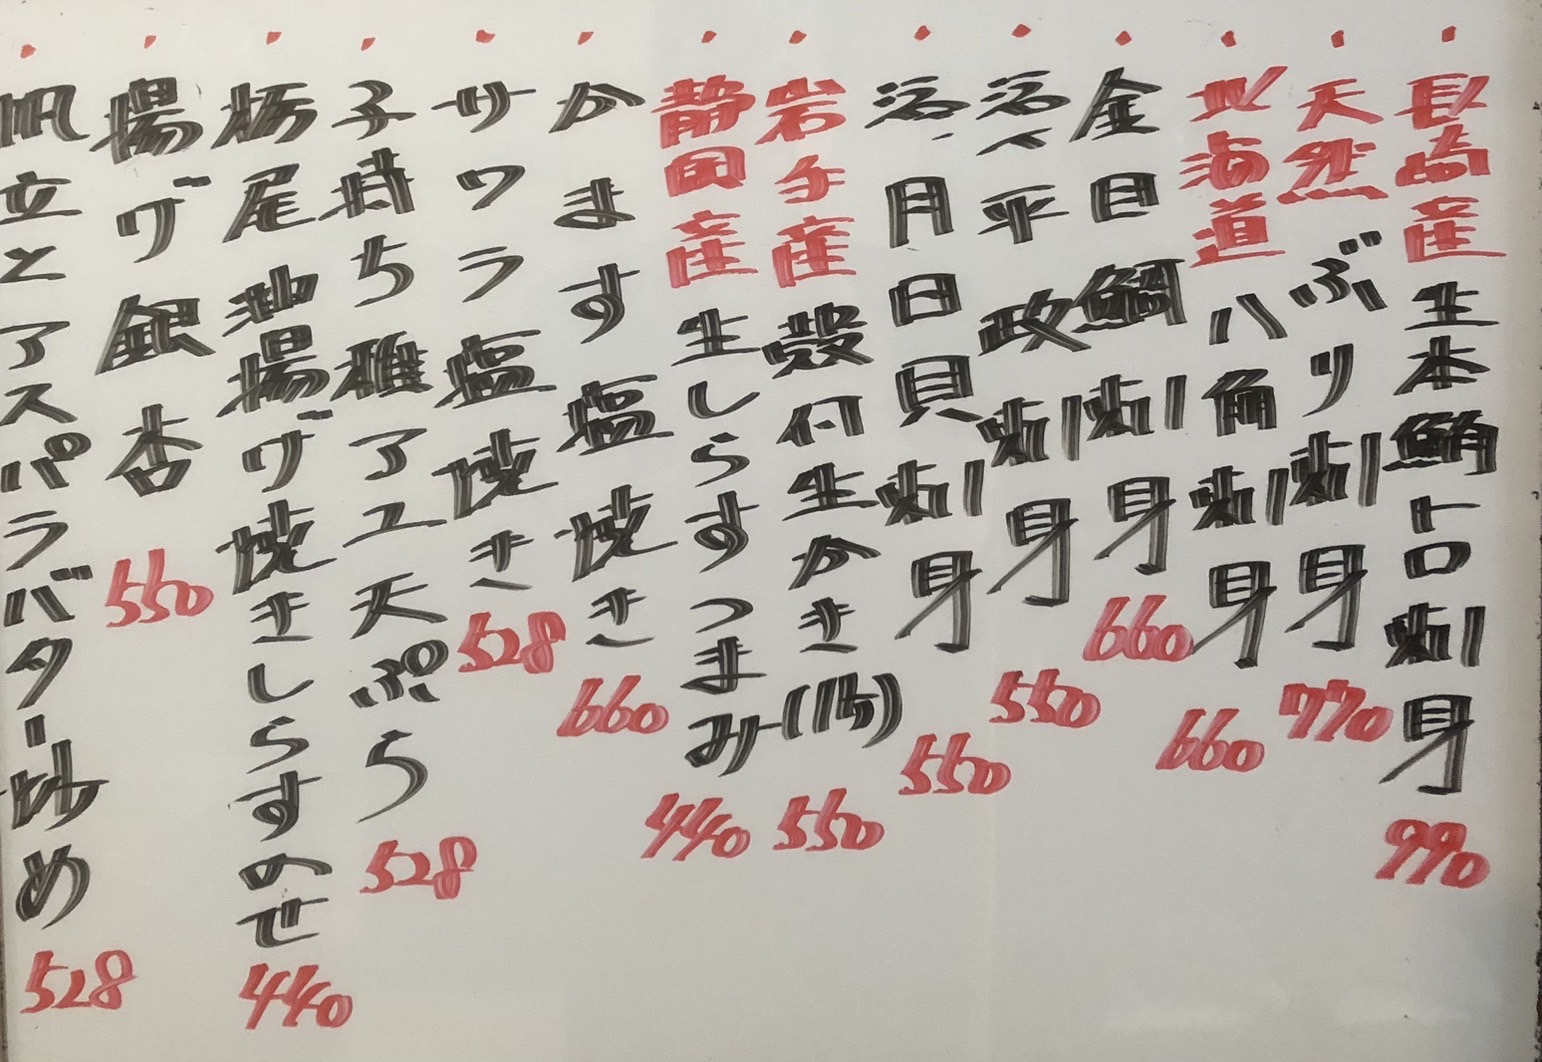 ・長崎産生本鮪トロ刺身 990
・天然ぶり刺身 770
・北海道八角刺身 660
・金目鯛刺身 660
・活〆平政刺身 550
・活、月日貝刺身 550
・岩手産殻付生かき 550
・静岡産生しらすつまみ 440
・かます塩焼き 660
・サワラ塩焼き 528
・子持ち稚アユ天ぷら 528
・栃尾油揚げ焼きしらすのせ 440
・揚げ銀杏 550
・帆立とアスパラバター炒め 528